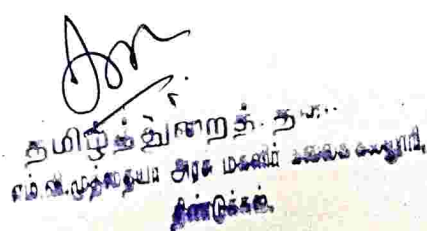 தமிழ்த்துறைத்
எம்.வி.முத்தையா அரசு மகளிர் கலைக் கல்லூரி,
திண்டுக்கல்.